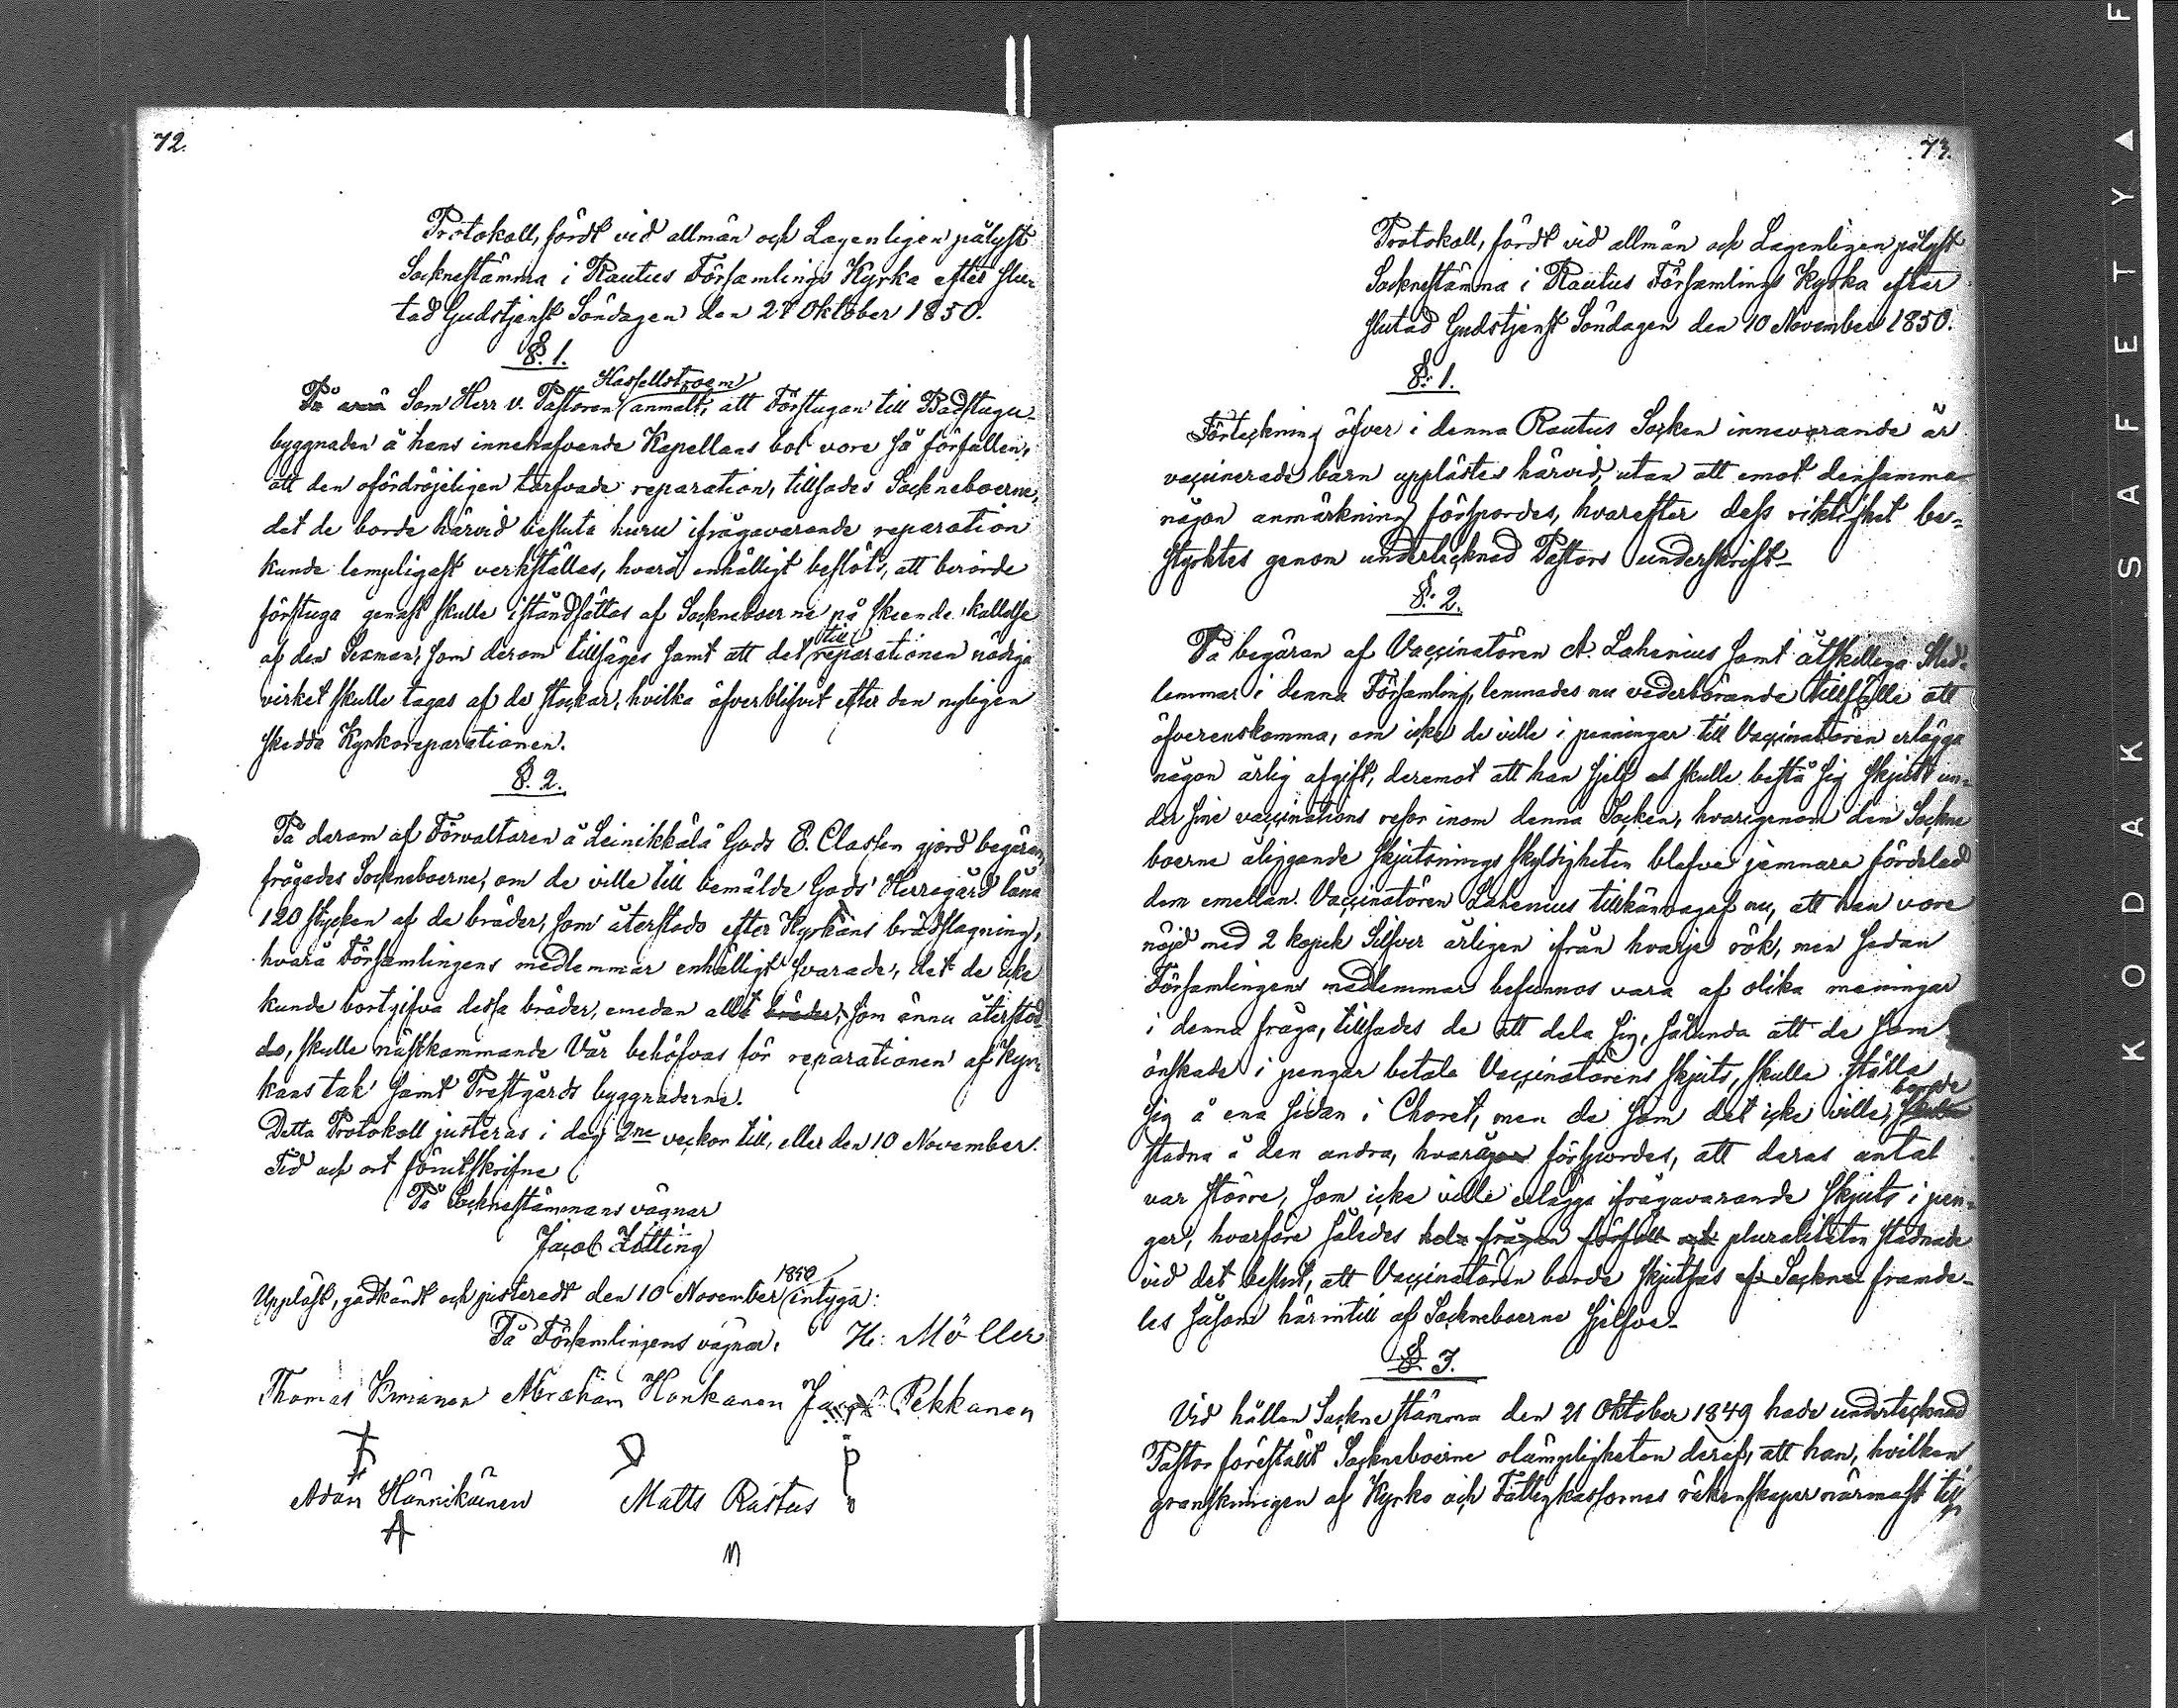 72.
Protokoll, fördt vid allmän och Lagenligen pålyst
Sockenstämma i Rautus Församlings Kyrka efter slu-
tad Gudstjenst Söndagen den 27 Oktober 1850.
§. 1.
Hasfellstroem
Som Herr v. Pastoren anmält, att Förstugan till Badstugu-
byggnaden å hans innehafvande Kapellans bol vore så förfallen,
att den ofördröjeligen tarfvade reparation, tillsades Sockneboerne,
det de borde härvid besluta huru ifrågavarande reparation
kunde lempligast verkställas, hvarå enhälligt beslöts, att berörde
förstuga genast skulle iståndsättas af Sockneboerne på skeende kallelse
af den Sexman, som derom tillsäges samt att det till reparationen nödiga
virket skulle tagas af de stockar, hvilka öfverblifvit efter den nyligen
skedda Kyrkoreparationen.
§. 2.
På derom af Förvaltaren å Leinikkälä Gods E. Classen gjord begäran,
frågades Sockneboerne, om de ville till bemälde Gods' Herregård låna
120 stycken af de bräder, som återstodo efter Kyrkans brädslagning,
hvarå Församlingens medlemmar enhälligt svarade, det de icke
kunde bortgifva dessa bräder, emedan allt bräder, som ännu återstod
do, skulle nästkommande Vår behöfvas för reparationen af Kyr-
kans tak samt Prestgårds byggnaderne.
Detta Protokoll justeras i dag 2ne veckor till, eller den 10 November.
Tid och ort förutskrifne
På Sockenstämmans vägnar
Jacob Zitting
Uppläst, godkändt och justeradt den 10 November 1850 intyga:
På Församlingens vägnar. H: Möller
Thomas Kimanen Abraham Honkanen Jacob Pekkanen
Adam Hännikäinen Matts Rastas
73.
Protokoll, fördt vid allmän och Lagenligen pålyst
Sockenstämma i Rautus Församlings Kyrka efter
slutad Gudstjenst Söndagen den 10 November 1850.
§. 1.
Förteckning öfver i denna Rautus Socken innevarande år
vaccinerade barn upplästes härvid, utan att emot densamma
någon anmärkning förspordes, hvarefter dess riktighet be-
styrktes genom undertecknad Pastors underskrift-
§. 2.
På begäran af Vaccinatören A. Lahenius samt åtskilliga Med-
lemmar i denna Församling, lemnades nu vederbörande tillfälle att
öfverenskomma, om icke de ville i penningar till Vaccinatören erlägga
någon årlig afgift, deremot att han sjelf skulle bestå sig skjuts un-
der sine vaccinations resor inom denna Socken, hvarigenom den Sockne
boerne åliggande skjutsnings skyldigheten blefve jemnare fördelad
dem emellan. Vaccinatören Lahenius tillkännagaf nu, att han vore
nöjd med 2 kopek Silfver årligen ifrån hvarje rök, men sedan
Församlingens medlemmar befunnos vara af olika meningar
i denna fråga, tillsades de att dela sig, sålunda att de som
önskade i pengar betala Vaccinatörens skjuts, skulle ställa
sig å ena sidan i Choret, men de som det icke ville, borde
stadna å den andra, hvaraf förspordes, att deras antal
var större, som icke ville erlägga ifrågavarande skjuts i pen-
gar, hvarföre således hela frågan förföll och pluraliteten stadnade
vid det beslut, att Vaccinatören borde skjutsas af Sockne framde-
les såsom härintill af Sockneboerne sjelfve-
§. 3.
Vid hållen Sockenstämma den 21 Oktober 1849 hade undertecknad
Pastor föreställt Sockneboerne olämpligheten deraf, att han, hvilken
granskningen af Kyrko och Fattigkassornes räkenskaper närmast till
KODAK SAFETY F